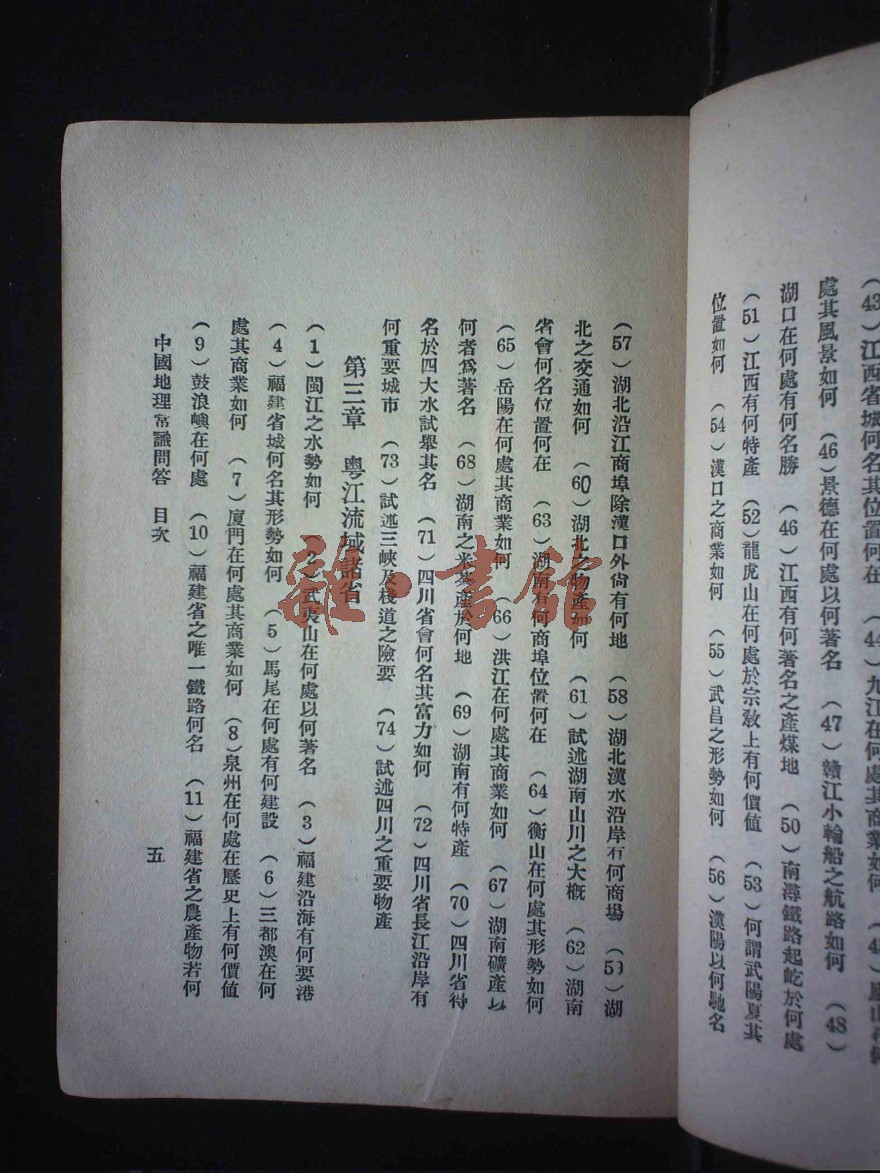 (43)江西省城何名其位置何在 (44)九江在何處其商業如何
處其風景如何 (46)景德在何處以何著名 (47)贛江小輪船之航路如何 (48)
湖口在何處有何名勝 (46)江西有何著名之產煤地 (50)南潯鐵路起屹於何處
(51)江西有何特產 (52)龍虎山在何處於宗敎上有何價値 (53)何謂武陽夏其
位置如何 (54)漢口之商業如何 (55)武昌之形勢如何 (56)漢陽以何馳名
(57)湖北沿江商埠除漢口外尙有何地 (58)湖北漢水沿岸有何商場 (59)湖
北之交通如何 (60)湖北之物產如何 (61)試述湖南山川之大槪 (62)湖南
省會何名位置何在 (63)湖南有何商埠位置何在 (64)衡山在何處其形勢如何
(65)岳陽在何處其商業如何 (66)洪江在何處其商業如何 (67)湖南礦產以
何者爲著名 (68)湖南之米茶產於何地 (69)湖南有何特產 (70)四川省得
名於四大水試舉其名 (71)四川省會何名其富力如何 (72)四川省長江沿岸有
何重要城市 (73)試述三峽及棧道之險要 (74)試述四川之重要物產
第三章 粵江流域諸省
(1)閩江之水勢如何 (2)武夷山在何處以何著名 (3)福建沿海有何要港
(4)福建省城何名其形勢如何 (5)馬尾在何處有何建設 (6)三都澳在何
處其商業如何 (7)廈門在何處其商業如何 (8)泉州在何處在歷史上有何價値
(9)鼓浪嶼在何處 (10)福建省之唯一鐵路何名 (11)福建省之農產物若何
中國地理常識問答 目次
五
雜·書館